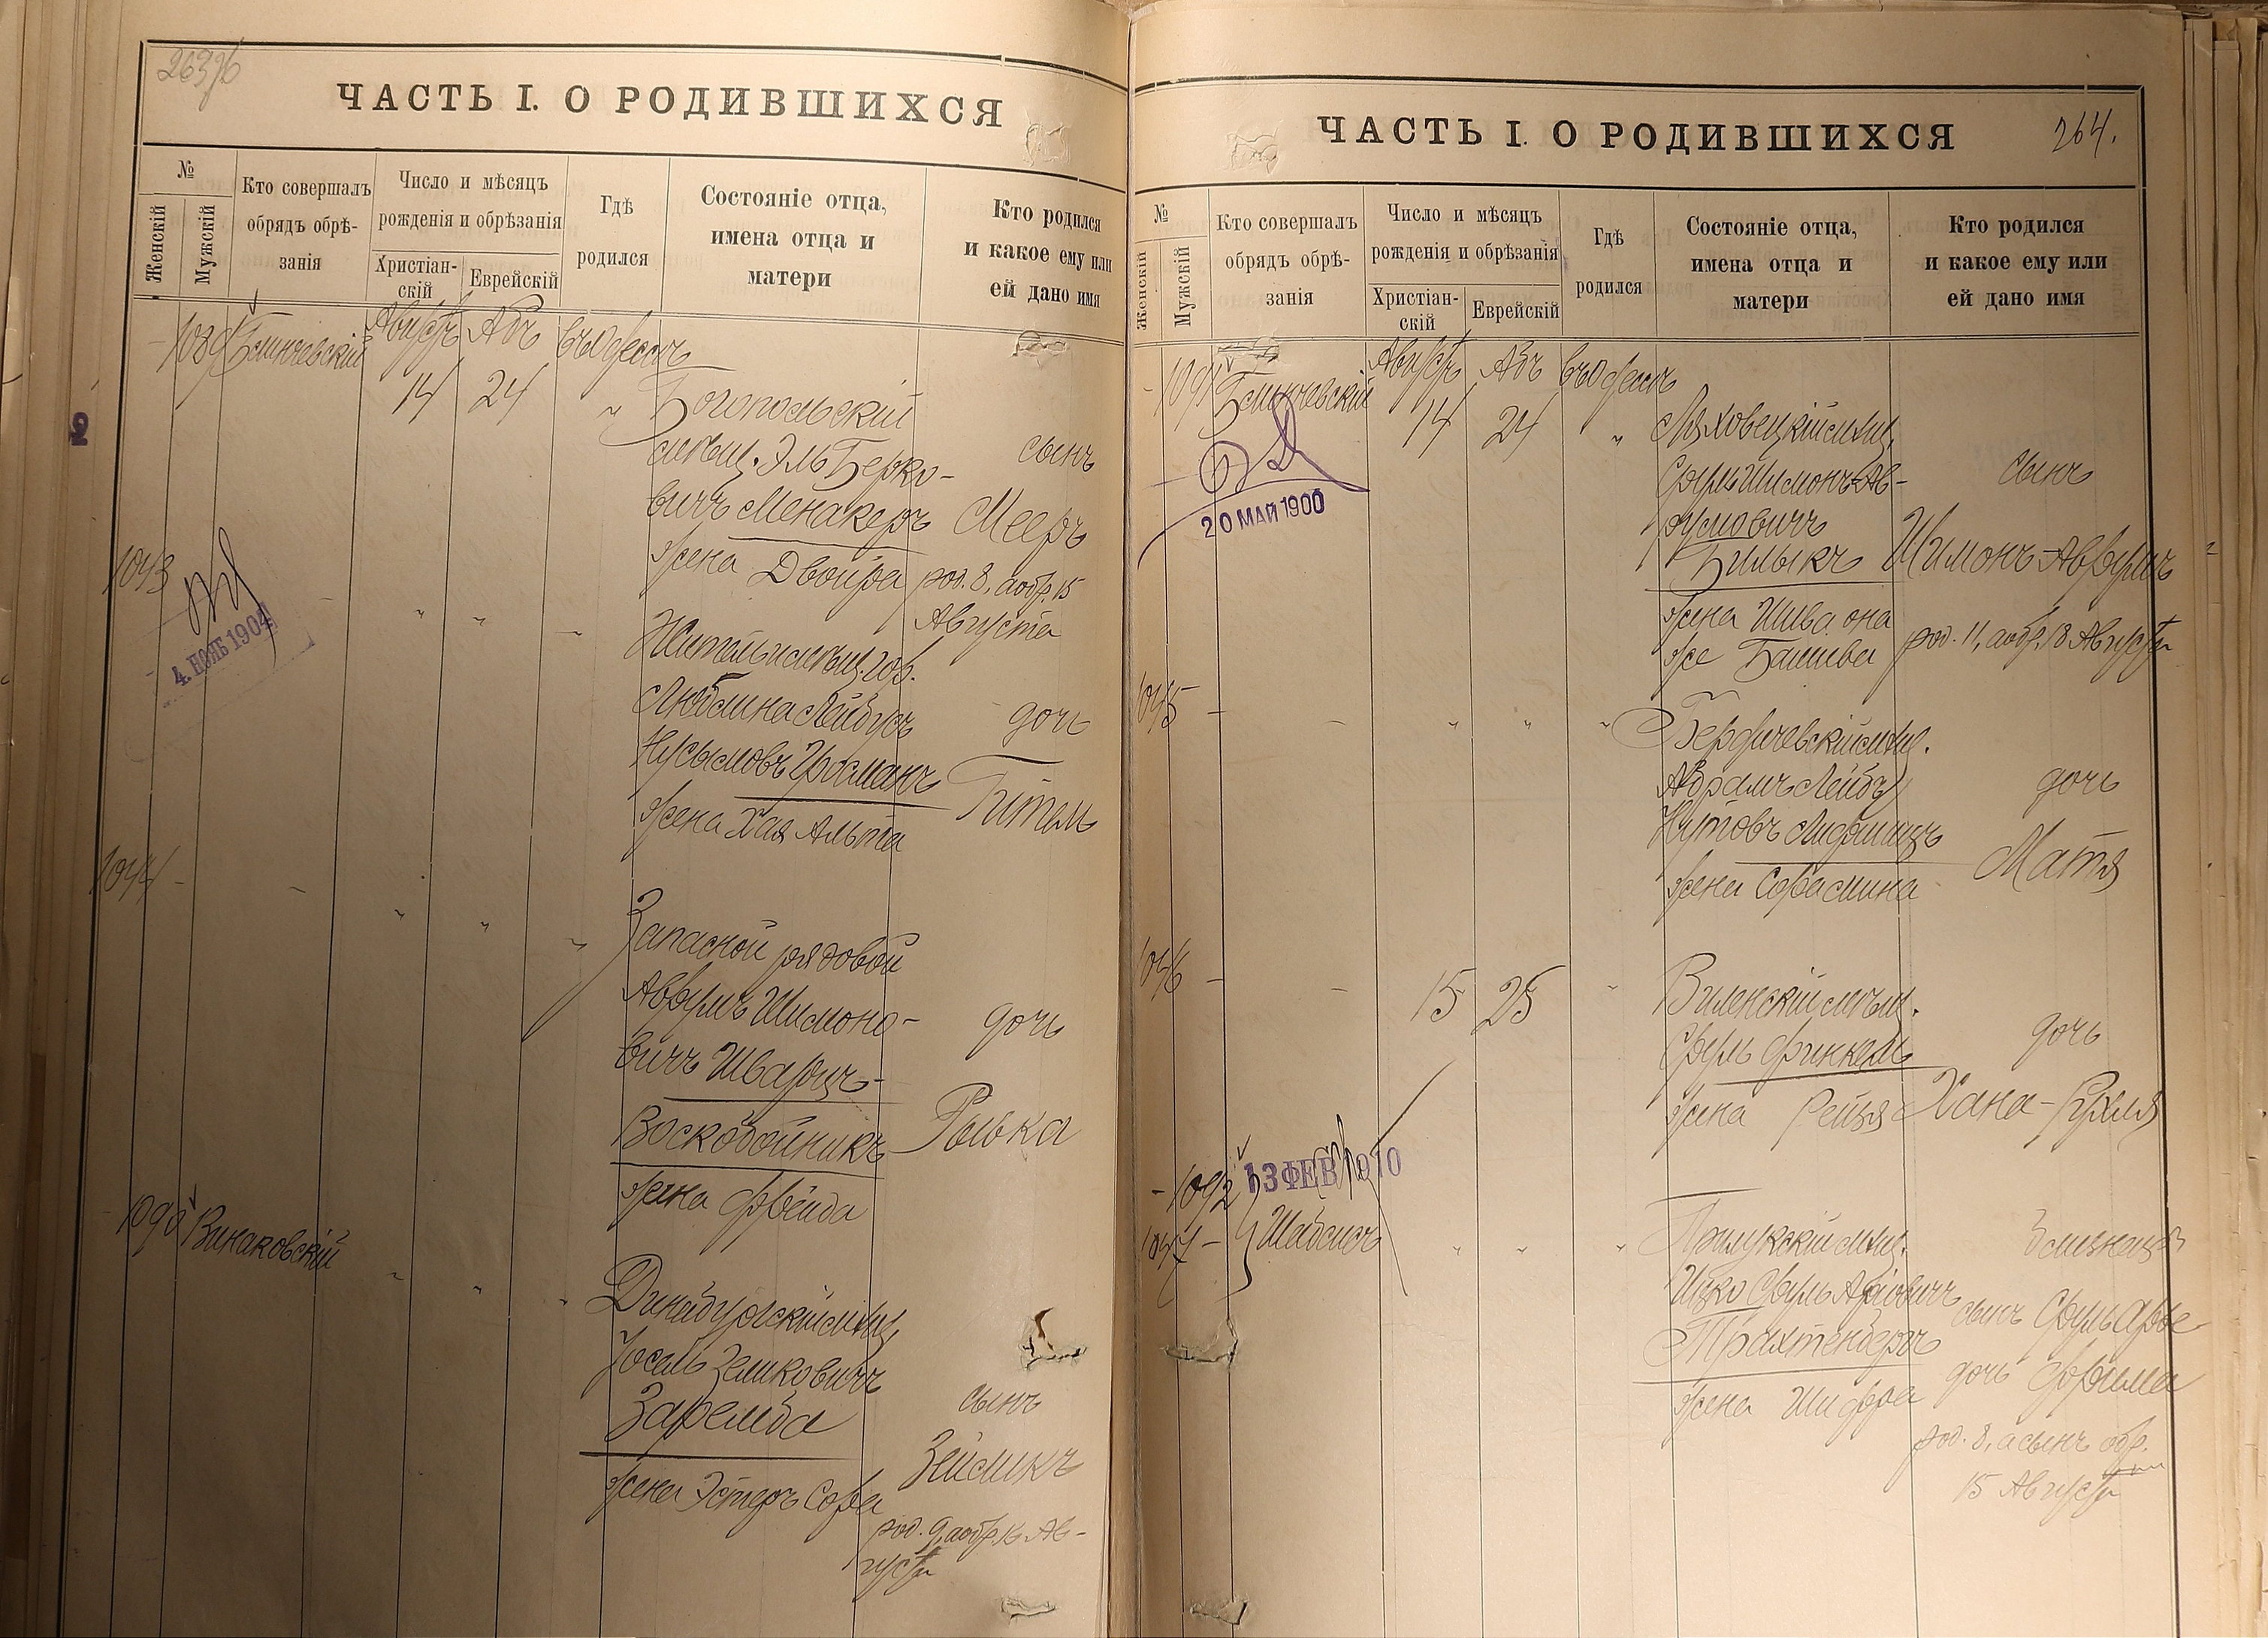 ЧАСТЬ I. О РОДИВШИХСЯ
№
Женскій
Мужскій
Кто совершалъ
обрядъ обрѣ-
занія
Число и мѣсяцъ
рожденія и обрѣзанія
Христіан-
скій
Еврейскій
Гдѣ
родился
Состояніе отца,
имена отца и
матери
Кто родился
и какое ему или
ей дано имя
1089
Августъ Абъ въ Одессѣ
14 24 "
Богопольскій
мѣщ. Эль Берко-
вичъ Менакеръ
жена Двойра
сынъ
Мееръ
род. 8, а обр. 15
Августа
1043
4. НОЯБ 1904
" "
Житель и мѣщ. гор.
Люблина Лейбусъ
Нусымовъ
жена Хая Альта
дочь
Гитель
1044
" " "
Запасной рядовой
Аврумъ Шимоно-
вичъ Шварцъ-
Воскобойникъ
жена Фрейда
дочь
Рывка
1090 Винаковскій
" " "
Динабургскій мѣщ.
Іосель Зеликовичъ
Заремба
жена Эстеръ Сора
сынъ
Зейликъ
род. 9, а обр. 16 Ав-
густа
264.
ЧАСТЬ I. О РОДИВШИХСЯ
№
Женскій
Мужскій
Кто совершалъ
обрядъ обрѣ-
занія
Число и мѣсяцъ
рожденія и обрѣзанія
Христіан-
скій
Еврейскій
Гдѣ
родился
Состояніе отца,
имена отца и
матери
Кто родился
и какое ему или
ей дано имя
1091
Августъ Абъ въ Одессѣ
14 24 "
20 МАЙ 1900
Ляховецкій мѣщ.
Сруль Шимонъ Ав-
румовичъ
Билыкъ
жена Шива она
же Башива
сынъ
Шимонъ-Аврумъ
род. 11, а обр. 18 Августа
1045
" " "
Бердичевскій мѣщ.
Абрамъ Лейбъ
Нутовъ Лифшицъ
жена
дочь
Матя
1046
15 25 "
Виленскій мѣщ.
Сруль Финкель
жена Рейзя
дочь
Хана-
1092
13 ФЕВ 1910
1047
Шабсисъ
" " "
Прилукскій мѣщ.
Ицко Сруль Аріовичъ
Трахтенбергъ
жена Шифра
Близнецы
сынъ Сруль Арье
дочь Фрима
род. 8, а сынъ обр.
15 Августа